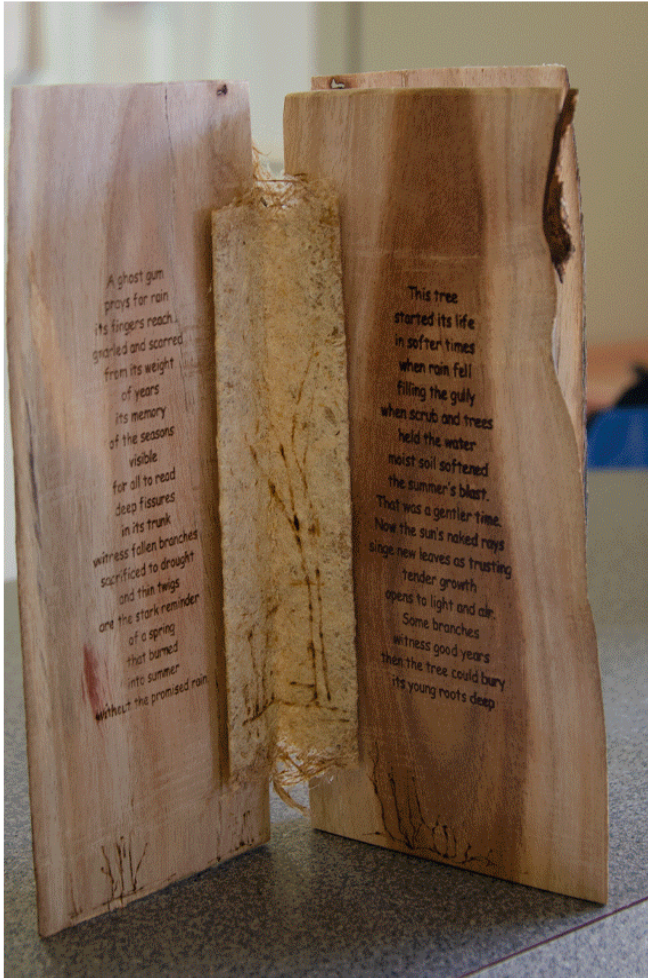 A ghost gum
prays for rain
its fingers reach..
gnarled and scarred
from its weight
of years
its memory
of the seasons
visible
for all to read
deep fissures
in its trunk
witness fallen branches
sacrificed to drought
and thin twigs
are the stark reminder
of a spring
that burned
into summer
without the promised rain
This tree
started its life
in softer times
when rain fell
filling the gully
when scrub and trees
held the water
moist soil softened
the summer's blast.
That was a gentler time.
Now the sun's naked rays
singe new leaves as trusting
tender growth
opens to light and air.
Some branches
witness good years
then the tree could bury
its young roots deep